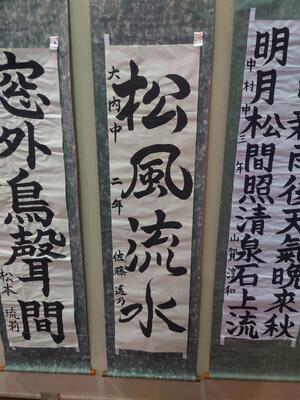 雨後天氣晚來秋
明月松間照清泉石上流
中村中三年
松風流水
大内中 二年 佐藤
窓外鳥聲間
松本